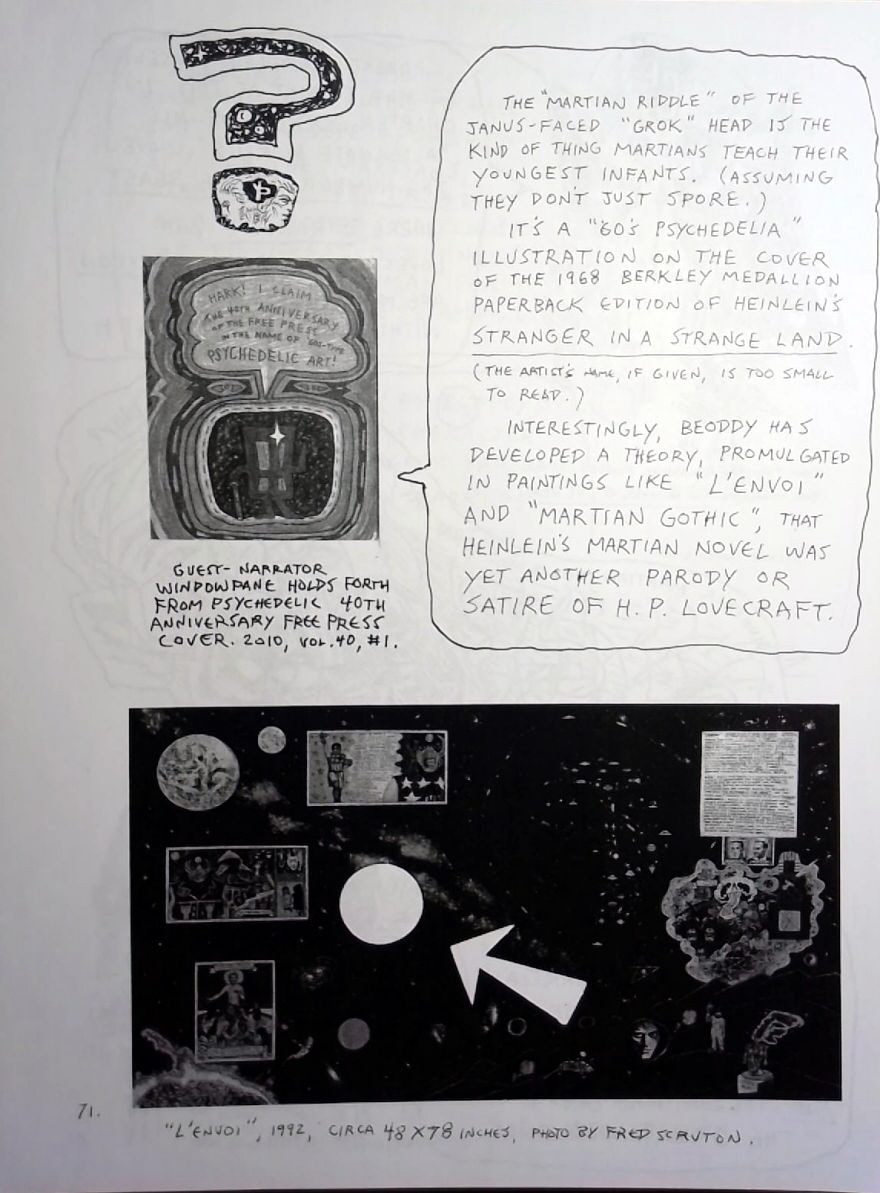 THE "MARTIAN RIDDLE" OF THE
JANUS-FACED "GROK" HEAD IS THE
KIND OF THING MARTIANS TEACH THEIR
YOUNGEST INFANTS. (ASSUMING
THEY DON'T JUST SPORE.)
IT'S A "60'S PSYCHEDELIA"
ILLUSTRATION ON THE COVER
OF THE 1968 BERKLEY MEDALLION
PAPERBACK EDITION OF HEINLEIN'S
STRANGER IN A STRANGE LAND.
(THE ARTIST'S NAME, IF GIVEN, IS TOO SMALL
TO READ.)
INTERESTINGLY, BEODDY HAS
DEVELOPED A THEORY, PROMULGATED
IN PAINTINGS LIKE "L'ENVOI"
AND "MARTIAN GOTHIC", THAT
HEINLEIN'S MARTIAN NOVEL WAS
YET ANOTHER PARODY OR
SATIRE OF H. P. LOVECRAFT.
HARK! I CLAIM
THE 40TH ANNIVERSARY
OF THE FREE PRESS
IN THE NAME OF '60S-TYPE
PSYCHEDELIC ART!
GUEST-NARRATOR
WINDOWPANE HOLDS FORTH
FROM PSYCHEDELIC 40TH
ANNIVERSARY FREE PRESS
COVER. 2010, VOL. 40, #1.
71.
"L'ENVOI", 1992, CIRCA 48 X 78 INCHES, PHOTO BY FRED SCRUTON.